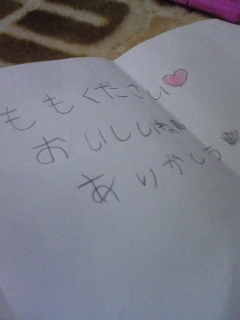 ももください♡
おいしいね
ありがとう♡